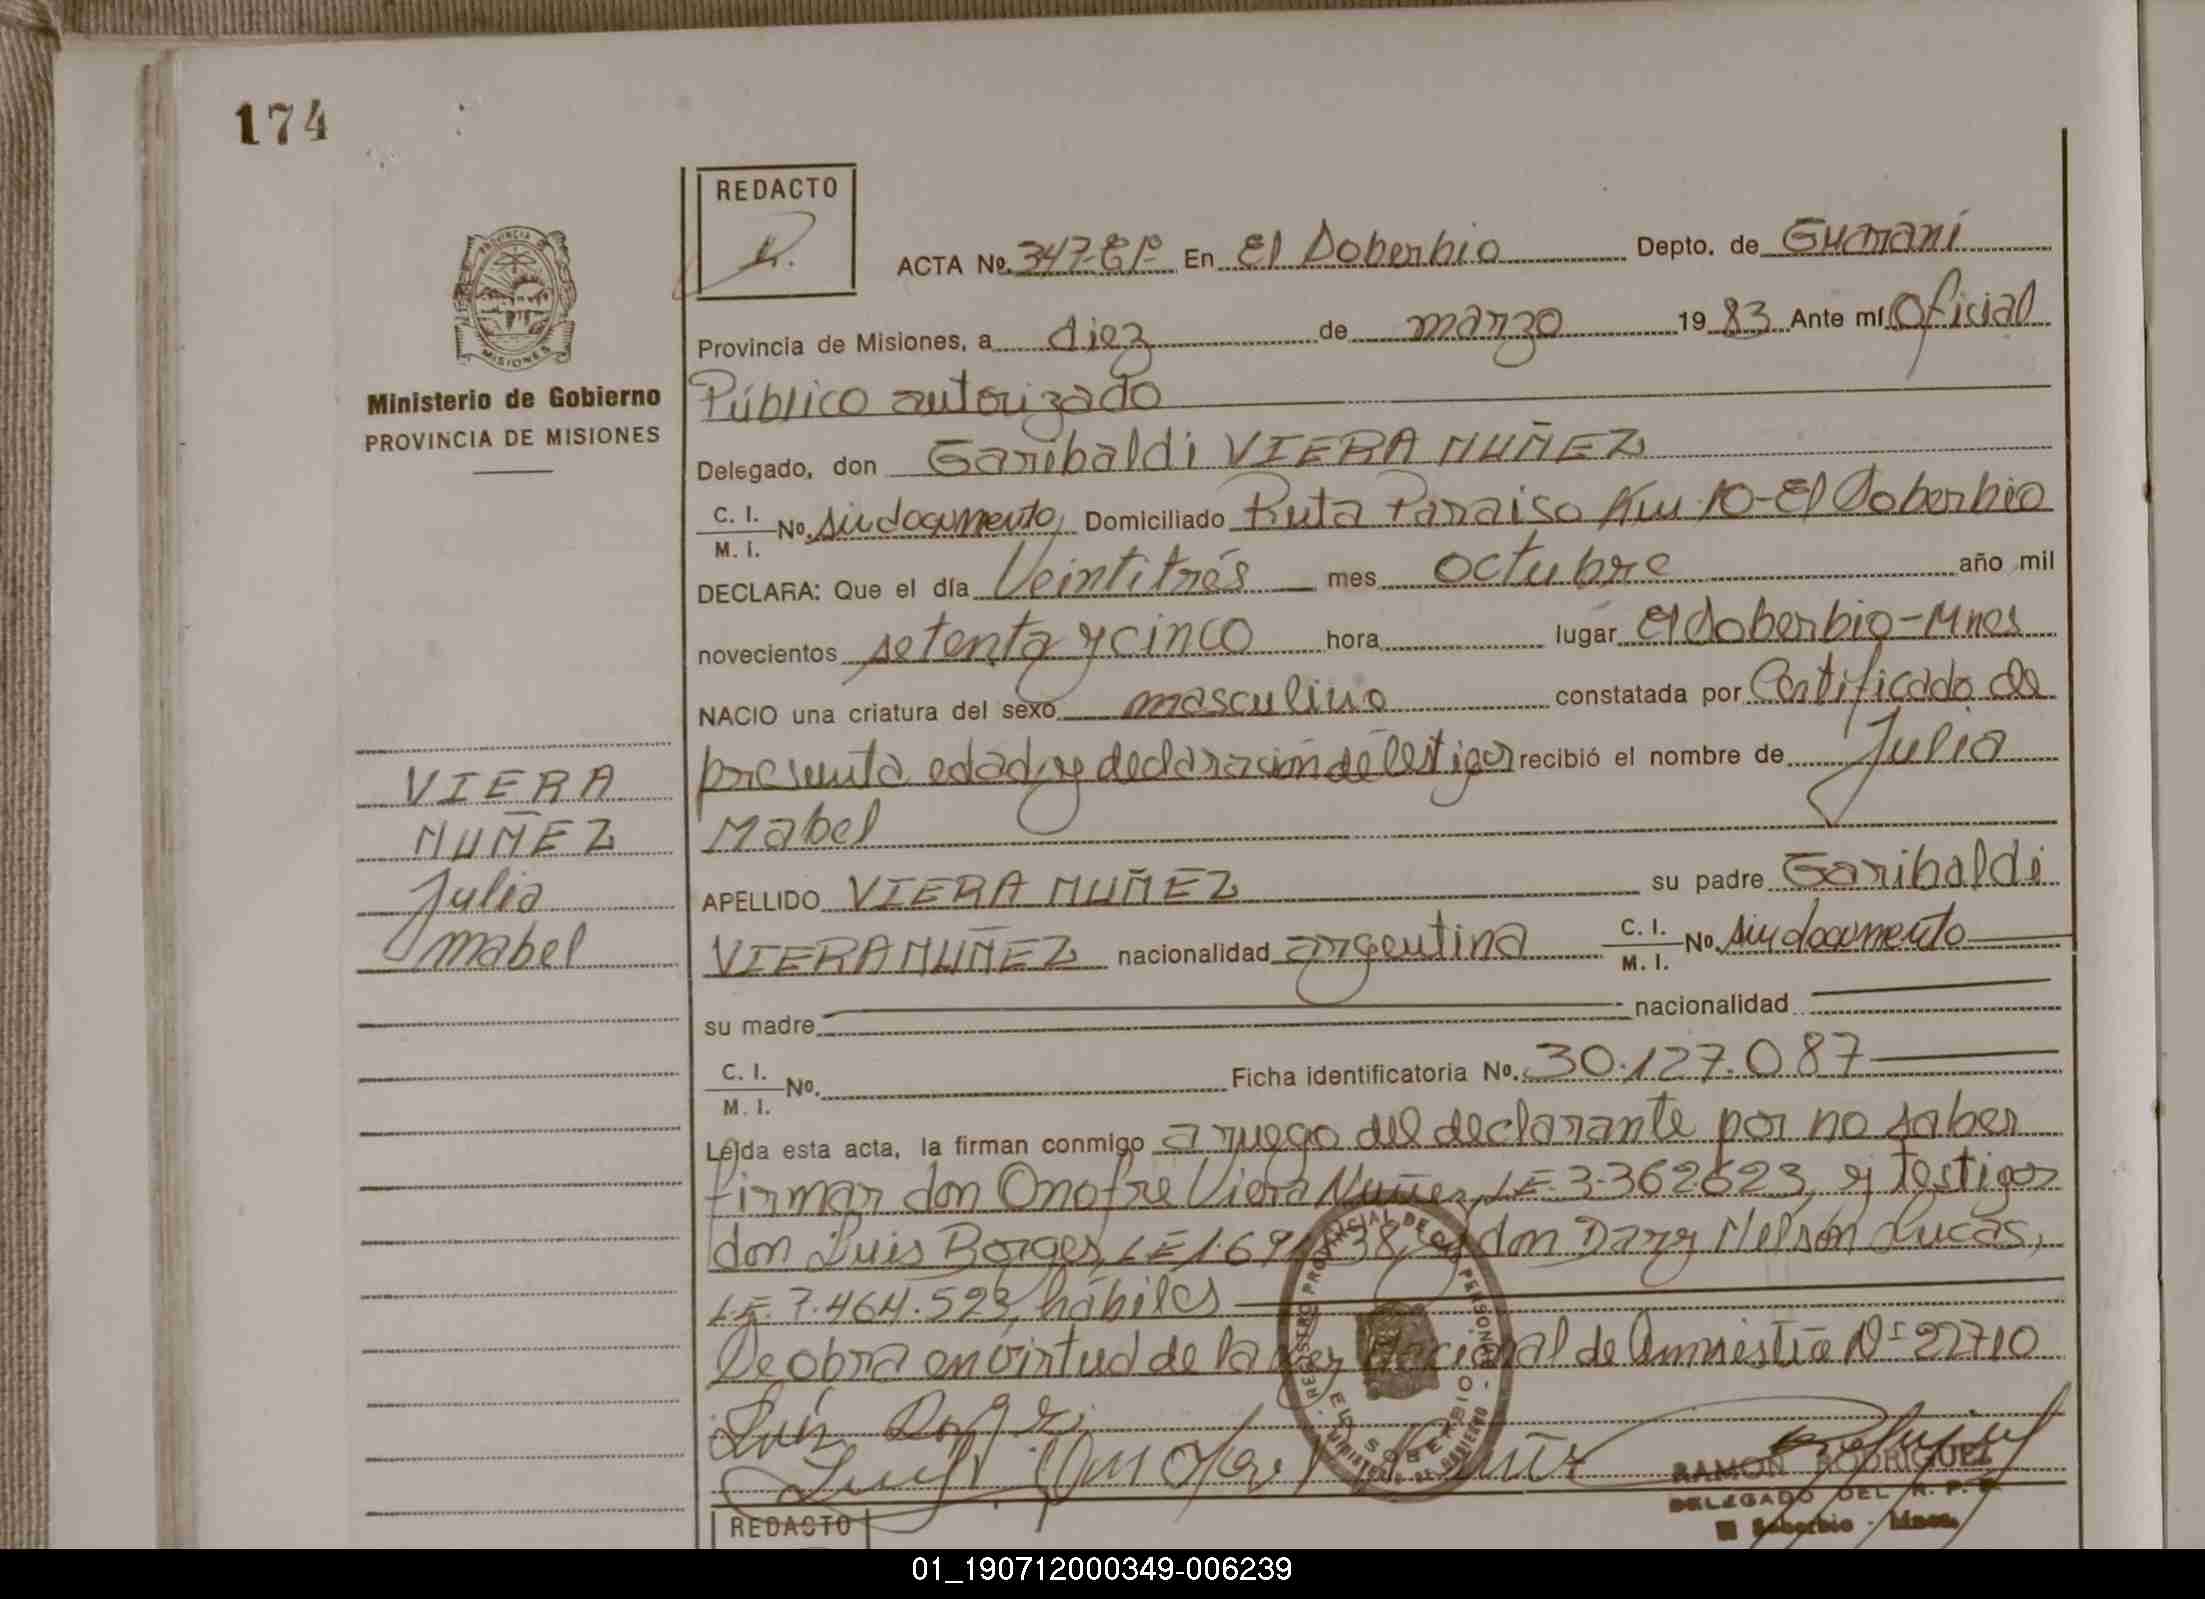 174
REDACTO
ACTA No. 347 En El Soberbio Depto. de Guaraní
Provincia de Misiones, a diez de marzo 1983 Ante mí Oficial
Ministerio de Gobierno
PROVINCIA DE MISIONES
Público autorizado
Delegado, don Garibaldi VIERA NUÑEZ
C. I. M. I. No. sin documento, Domiciliado Ruta Paraiso Km 10-El Soberbio
DECLARA: Que el día Veintitrés mes octubre año mil
novecientos setenta y cinco hora lugar El Soberbio-Mnes
NACIO una criatura del sexo masculino constatada por Certificado de
presunta edad y declaración de testigos recibió el nombre de Julia
Mabel
VIERA
NUÑEZ
Julia
Mabel
APELLIDO VIERA NUÑEZ su padre Garibaldi
VIERA NUÑEZ nacionalidad argentina C. I. M. I. No. sin documento
su madre nacionalidad
C. I. M. I. No. Ficha identificatoria No. 30.127.087
Leída esta acta, la firman conmigo a ruego del declarante por no saber
firmar don Onofre Viera Nuñez, LE 3.362623, y testigos
don Luis Borges, LE y don Dary Nelson Lucas,
LE. 7.464.523, hábiles
Se obra en virtud de la Ley Nacional de Amnistía Nº 22710
REGISTRO PROVINCIAL DE LAS PERSONAS
EL SOBERBIO
MINISTERIO DE GOBIERNO
RAMON RODRIGUEZ
DELEGADO DEL R. P. P.
El Soberbio - Mnes.
REDACTO
01_190712000349-006239